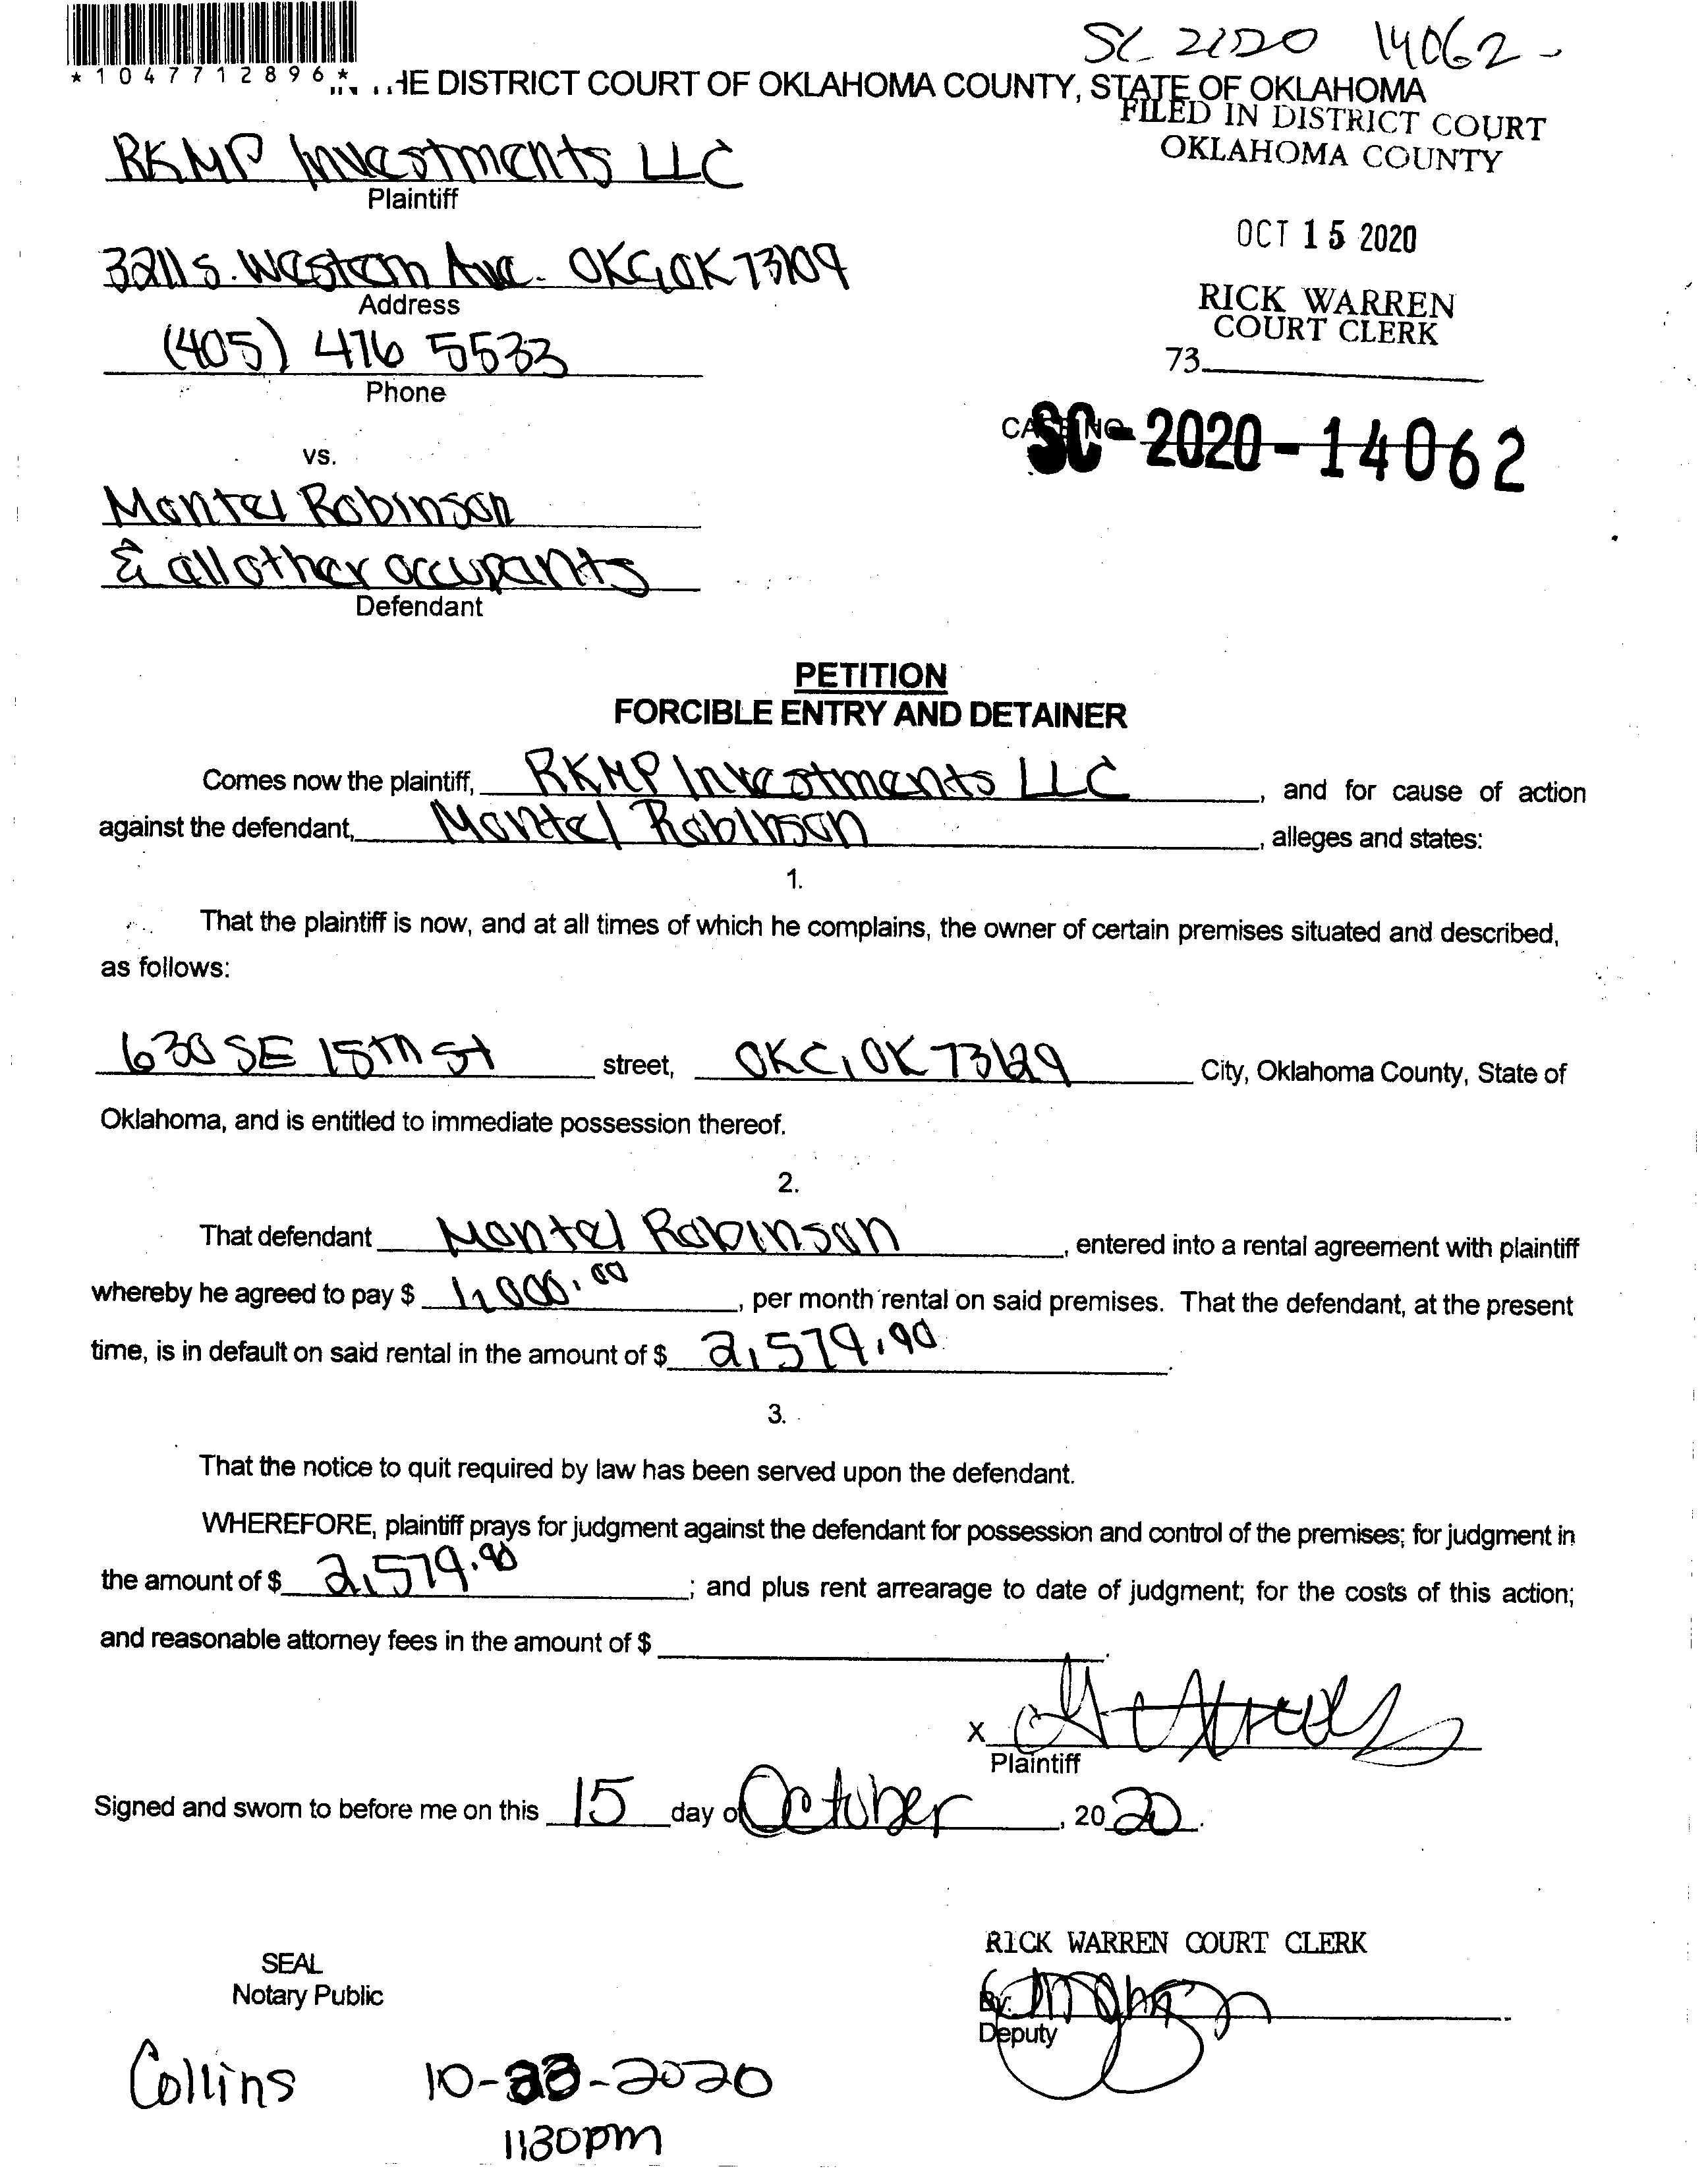 SC 2020 14062 -
*1047712896*
HE DISTRICT COURT OF OKLAHOMA COUNTY, STATE OF OKLAHOMA
FILED IN DISTRICT COURT
OKLAHOMA COUNTY
RKMP Investments LLC
Plaintiff
OCT 15 2020
3211 S. Western Ave. OKC, OK 73109
Address
RICK WARREN
COURT CLERK
(405) 476 5533
73
Phone
CASE NO.
SC-2020-14062
vs.
Montel Robinson
& all other occupants
Defendant
PETITION
FORCIBLE ENTRY AND DETAINER
Comes now the plaintiff, RKMP Investments LLC, and for cause of action
against the defendant, Montel Robinson, alleges and states:
1.
That the plaintiff is now, and at all times of which he complains, the owner of certain premises situated and described,
as follows:
630 SE 15th St street, OKC, OK 73129 City, Oklahoma County, State of
Oklahoma, and is entitled to immediate possession thereof.
2.
That defendant Montel Robinson, entered into a rental agreement with plaintiff
whereby he agreed to pay $ 1,000.00, per month rental on said premises. That the defendant, at the present
time, is in default on said rental in the amount of $ 2,579.90.
3.
That the notice to quit required by law has been served upon the defendant.
WHEREFORE, plaintiff prays for judgment against the defendant for possession and control of the premises; for judgment in
the amount of $ 2,579.90; and plus rent arrearage to date of judgment; for the costs of this action;
and reasonable attorney fees in the amount of $.
X
Plaintiff
Signed and sworn to before me on this 15 day of October, 2020.
RICK WARREN COURT CLERK
SEAL
Notary Public
By:
Deputy
Collins 10-23-2020
1:30pm